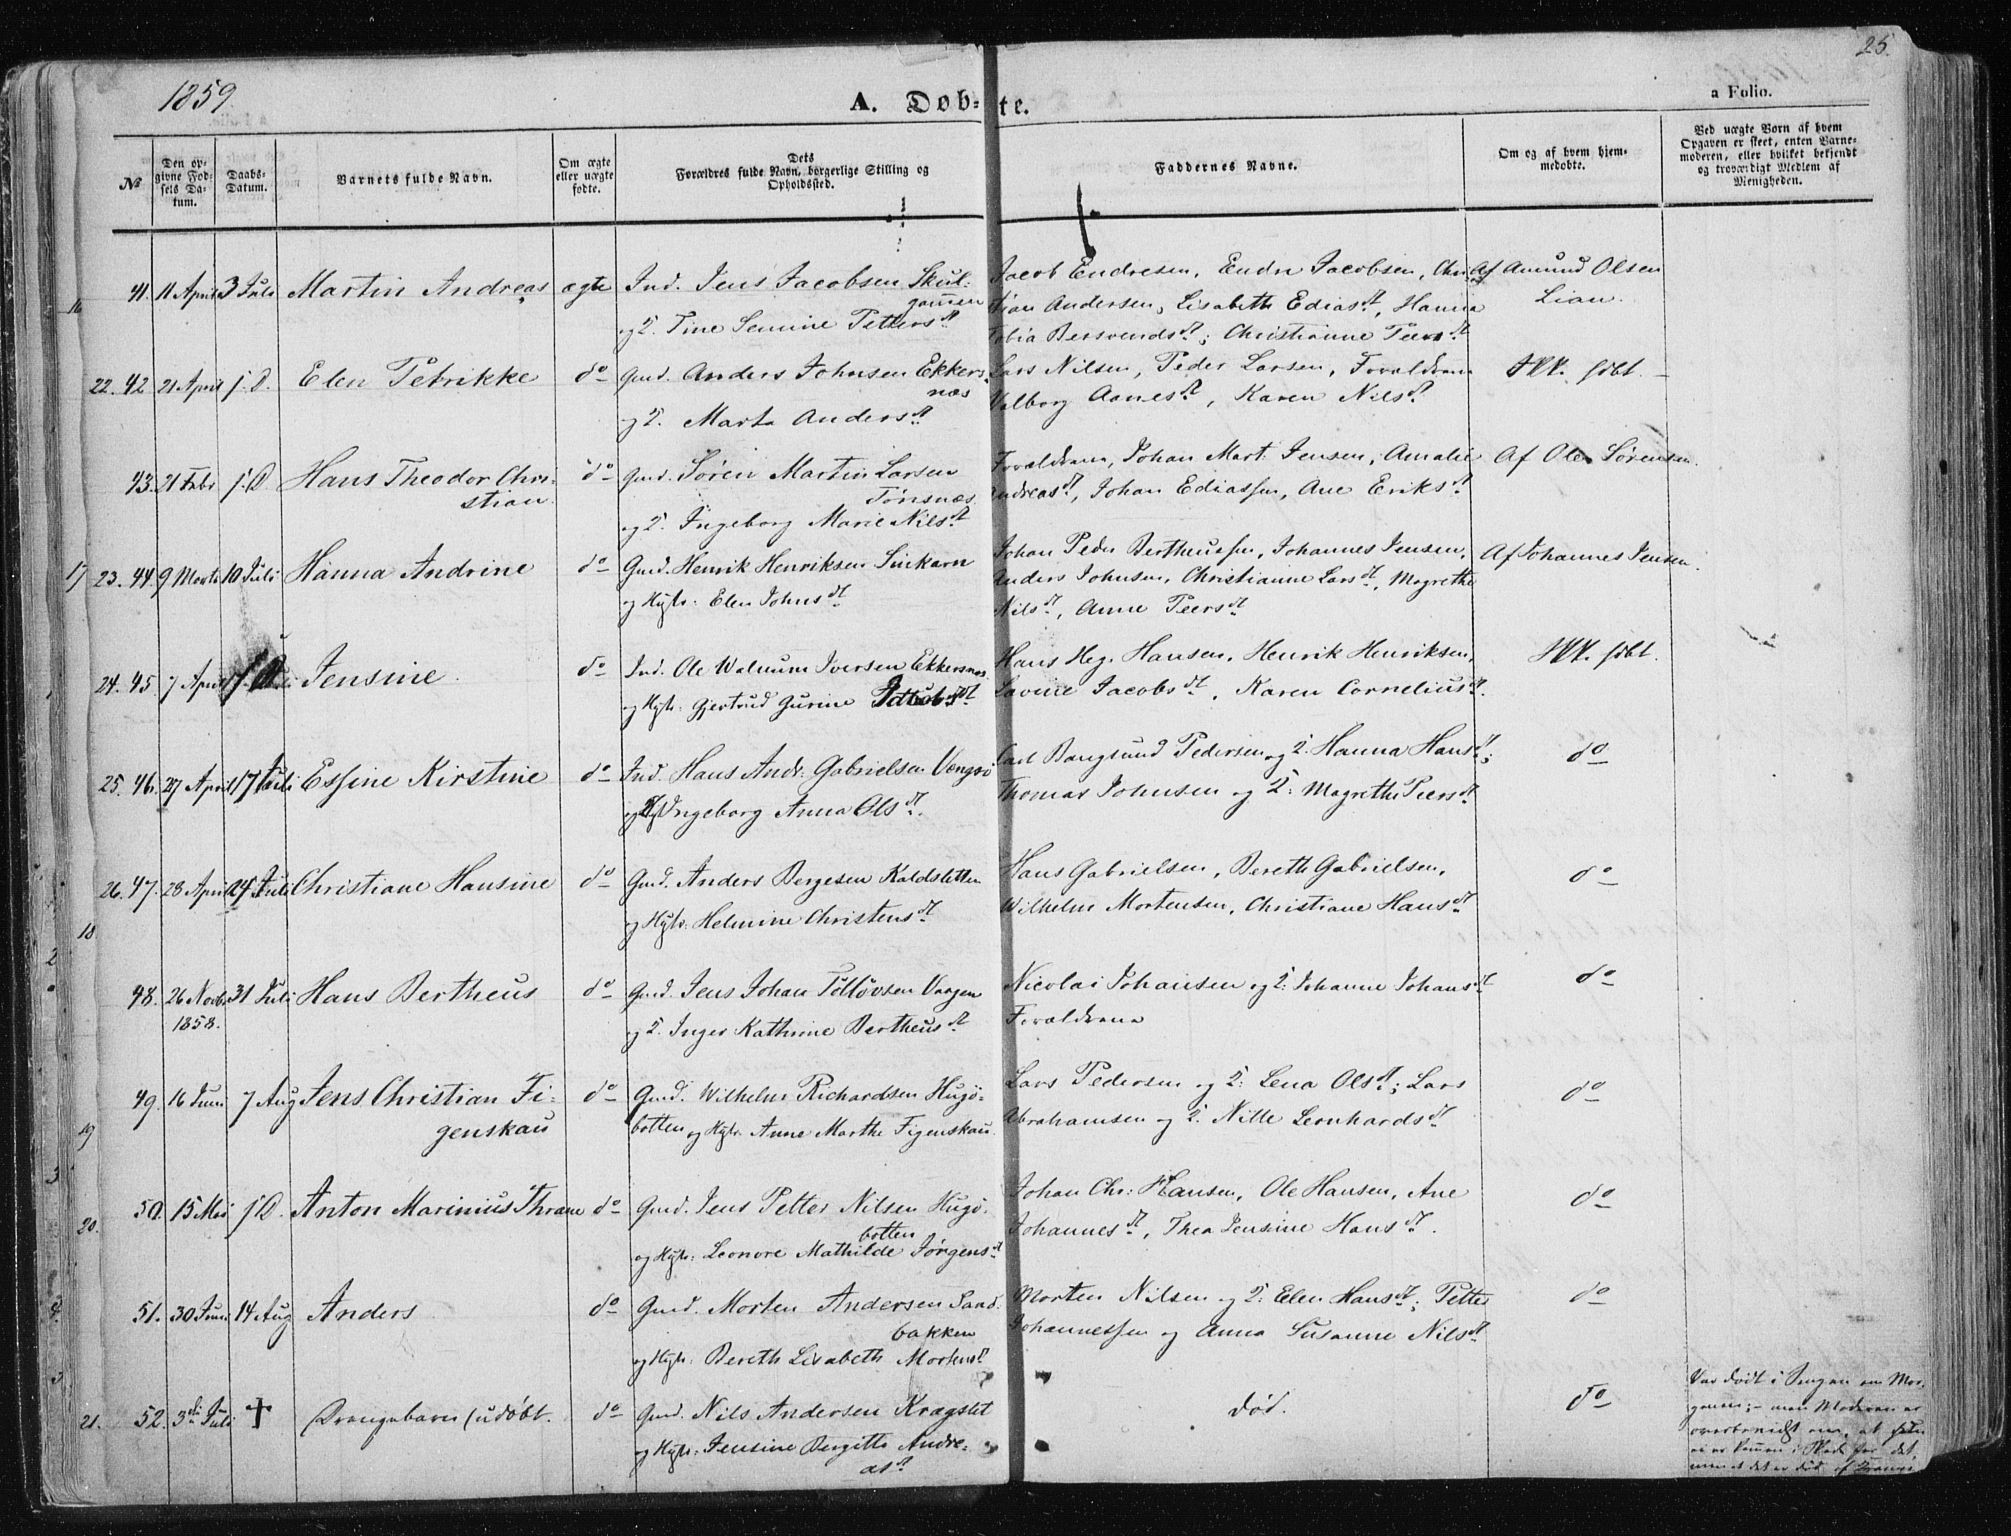 1859.
25.
A. Døb-te.
a Folio.
No
Den op-
givne Fød-
sels Da-
tum.
Daabs-
Datum.
Barnets fulde Navn.
Om ægte
eller uægte
fødte.
Dets
Forældres fulde Navn, borgerlige Stilling og
Opholdssted.
Faddernes Navne.
Om og af hvem hjem-
medøbte.
Ved uægte Børn af hvem
Opgaven er skeet, enten Barne-
moderen, eller hvilket bekjendt
og troværdigt Medlem af
Menigheden.
16
41. 11 April 3 Juli Martin Andreas ægte Ind. Jens Jacobsen Skul-
gammen
og H. Tine Semine Petters dt
Jacob Endresen, Endre Jacobsen, Chri-
stian Andersen, Lisabeth Edias dt, Hanna
Tobia Bersvends dt; Christianne Peers dt
Af Amund Olsen
Lian.
22. 42 21 April s. D. Elen Petrikke do Gmd. Anders Johnsen Ekkers-
næs
og H. Marta Anders dt
Lars Nilsen, Peder Larsen, Forældrene
Valborg Aanes dt, Karen Nils dt
Ikk. døbt.
43. 21 Febr s. D Hans Theodor Chri-
stian
do Gmd. Søren Martin Larsen
Tønsnæs
og H. Ingeborg Marie Nils dt
Forældrene, Johan Mart. Jensen, Amalie
Andreas dt, Johan Ediassen, Ane Eriks dt
Af Ole Sørensen.
17 23. 44. 9 Marts 10 Juli Hanna Andrine do Gmd. Henrik Henriksen Sinkarn
og Hstr: Elen Johns dt
Johan Peder Bertheussen, Johannes Jensen,
Anders Johnsen, Christianne Lars dt, Magrethe
Nils dt, Anne Peers dt
Af Johannes Jensen.
24. 45. 7 April s. D Jensine do Ind. Ole Walnum Iversen Ekkersnæs
og Hstr: Gjertrud Gurine Jacobs dt
Hans Heg. Hansen, Henrik Henriksen,
Lavine Jacobs dt, Karen Cornelius dt.
Ikk. døbt.
25. 46. 27 April 17 Juli Essine Kirstine do Ind. Hans Andr. Gabrielsen Vengsø
og Hst Ingeborg Anna Ols dt.
Carl Banglund Pedersen og H. Hanna Hans dt;
Thomas Johnsen og H: Magrethe Peers dt
do
26. 47. 28 April 24 Juli Christiane Hansine do Gmd. Anders Bergesen Kaldsletten
og Hstr: Helmine Christens dt
Hans Gabrielsen, Bereth Gabrielsen,
Wilhelm Mortensen, Christiane Hans dt
do
18
48. 26 Novb. 31 Juli Hans Bertheus
1858.
do Gmd. Jens Johan Tolløvsen Vaagen
og H. Inger Kathrine Bertheus dt
Nicolai Johansen og H: Johanne Johans dt
Forældrene
do
49. 16 Juni 7 Aug Jens Christian Fi-
genskau
do Gmd. Wilhelm Richardsen Hugø-
botten og Hstr. Anne Marthe Figenskau.
Lars Pedersen og H: Lena Ols dt; Lars
Abrahamsen og H. Nille Leonhards dt
do
19
50. 15 Mai s. D. Anton Marinius Thrane do Gmd. Jens Petter Nilsen Hugø-
botten
og Hstr: Leonore Mathilde Jørgens dt
Johan Chr: Hansen, Ole Hansen, Ane
Johannes dt, Thea Jensine Hans dt.
do
20.
51. 30 Juni 14 Aug Anders do Gmd. Morten Andersen Sand-
bakken
og Hstr: Bereth Lisabeth Mortens dt
Morten Nilsen og H: Elen Hans dt; Petter
Johannessen og Anna Susanne Nils dt
do
21. 52. 3 Juli † Drengebarn (udøbt. do Gmd. Nils Andersen Kragslet
og Hstr: Jensine Bergitte Andre-
as dt
død.
do
Var dødt i Sengen om Mor-
genen; – men Moderen er
overbeviist om, at
ei er kommen i Skade for det,
men at det er død af